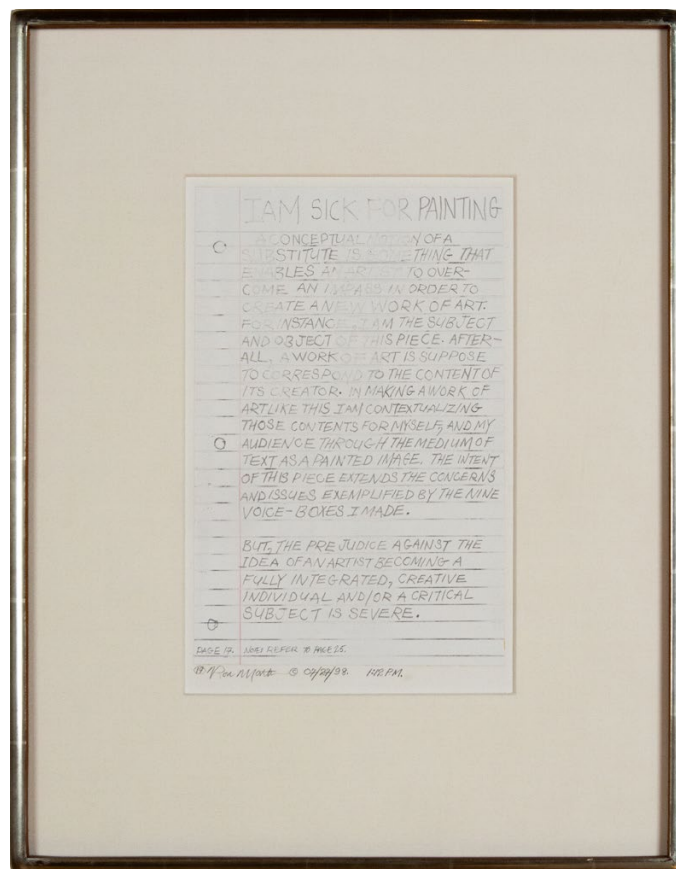 I AM SICK FOR PAINTING
A CONCEPTUAL NOTION OF A
SUBSTITUTE IS SOMETHING THAT
ENABLES AN ARTIST TO OVER-
COME AN IMPASS IN ORDER TO
CREATE A NEW WORK OF ART.
FOR INSTANCE, I AM THE SUBJECT
AND OBJECT OF THIS PIECE. AFTER-
ALL, A WORK OF ART IS SUPPOSE
TO CORRESPOND TO THE CONTENT OF
ITS CREATOR. IN MAKING A WORK OF
ART LIKE THIS I AM CONTEXTUALIZING
THOSE CONTENTS FOR MYSELF, AND MY
AUDIENCE THROUGH THE MEDIUM OF
TEXT AS A PAINTED IMAGE. THE INTENT
OF THIS PIECE EXTENDS THE CONCERNS
AND ISSUES EXEMPLIFIED BY THE NINE
VOICE-BOXES I MADE.
BUT, THE PREJUDICE AGAINST THE
IDEA OF AN ARTIST BECOMING A
FULLY INTEGRATED, CREATIVE
INDIVIDUAL AND/OR A CRITICAL
SUBJECT IS SEVERE.
PAGE 17. NOTES REFER TO PAGE 25.
P.M.